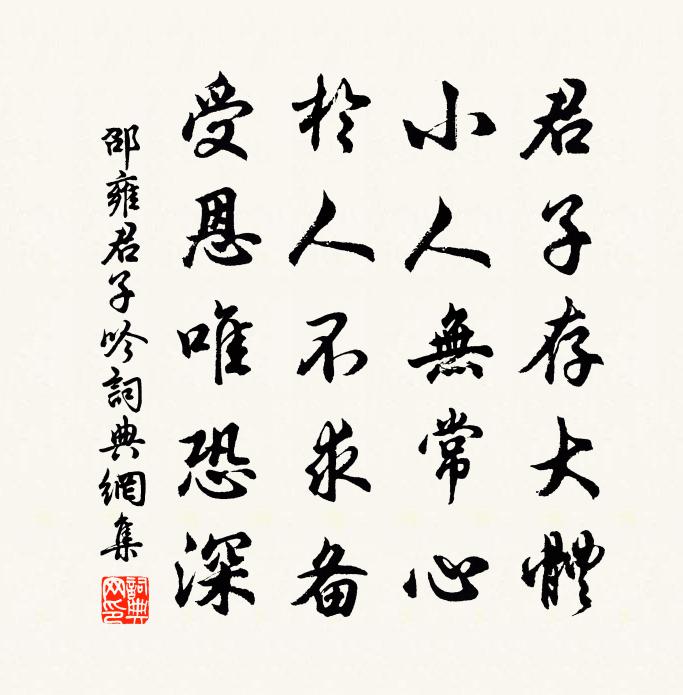 君子存大體
小人無常心
於人不求备
受恩唯恐深
邵雍君子吟詞典網集
詞典網印